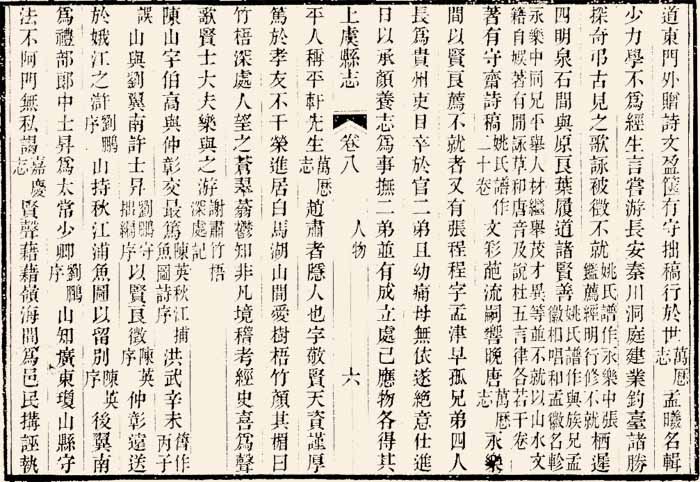 道東門外贈詩文盈篋有守拙稿行於世萬歷志孟曦名輯
少力學不爲經生言嘗游長安秦川洞庭建業釣臺諸勝
探奇弔古見之歌詠被徵不就姚氏譜作永樂中張鑑薦經明行修不就栖遲
四明泉石間與原良葉履道諸賢善姚氏譜作與族兄孟徽相唱和孟徽名軫
永樂中同兄平舉人材繼舉茂才異等並不就以山水文籍自娛著有閒詠草和唐音及說杜五言律各若干卷
著有守齋詩稿姚氏譜作二十卷文彩葩流嗣響晚唐萬歷志永樂
間以賢良薦不就者又有張程程字孟津早孤兄弟四人
長爲貴州吏目卒於官二弟且幼痛母無依遂絕意仕進
日以承顏養志爲事撫二弟並有成立處己應物各得其
上虞縣志 卷八 人物 六
平人稱平軒先生萬歷志趙肅者隱人也字敬賢天資謹厚
篤於孝友不干榮進居白馬湖山間愛樹梧竹顏其楣曰
竹梧深處人望之蒼翠蓊鬱知非凡境稽考經史喜爲聲
歌賢士大夫樂與之游謝肅竹梧深處記
陳山字伯高與仲彰交最篤陳英秋江捕魚圖詩序洪武辛未傳作丙子
誤山與劉翼南許士昇劉鵬守拙稿序以賢良徵陳英序仲彰遠送
於娥江之滸劉鵬序山持秋江浦魚圖以留別陳英序後翼南
爲禮部郎中士昇爲太常少卿劉鵬序山知廣東瓊山縣守
法不阿門無私謁嘉慶志賢聲藉藉嶺海間爲邑民搆誣執